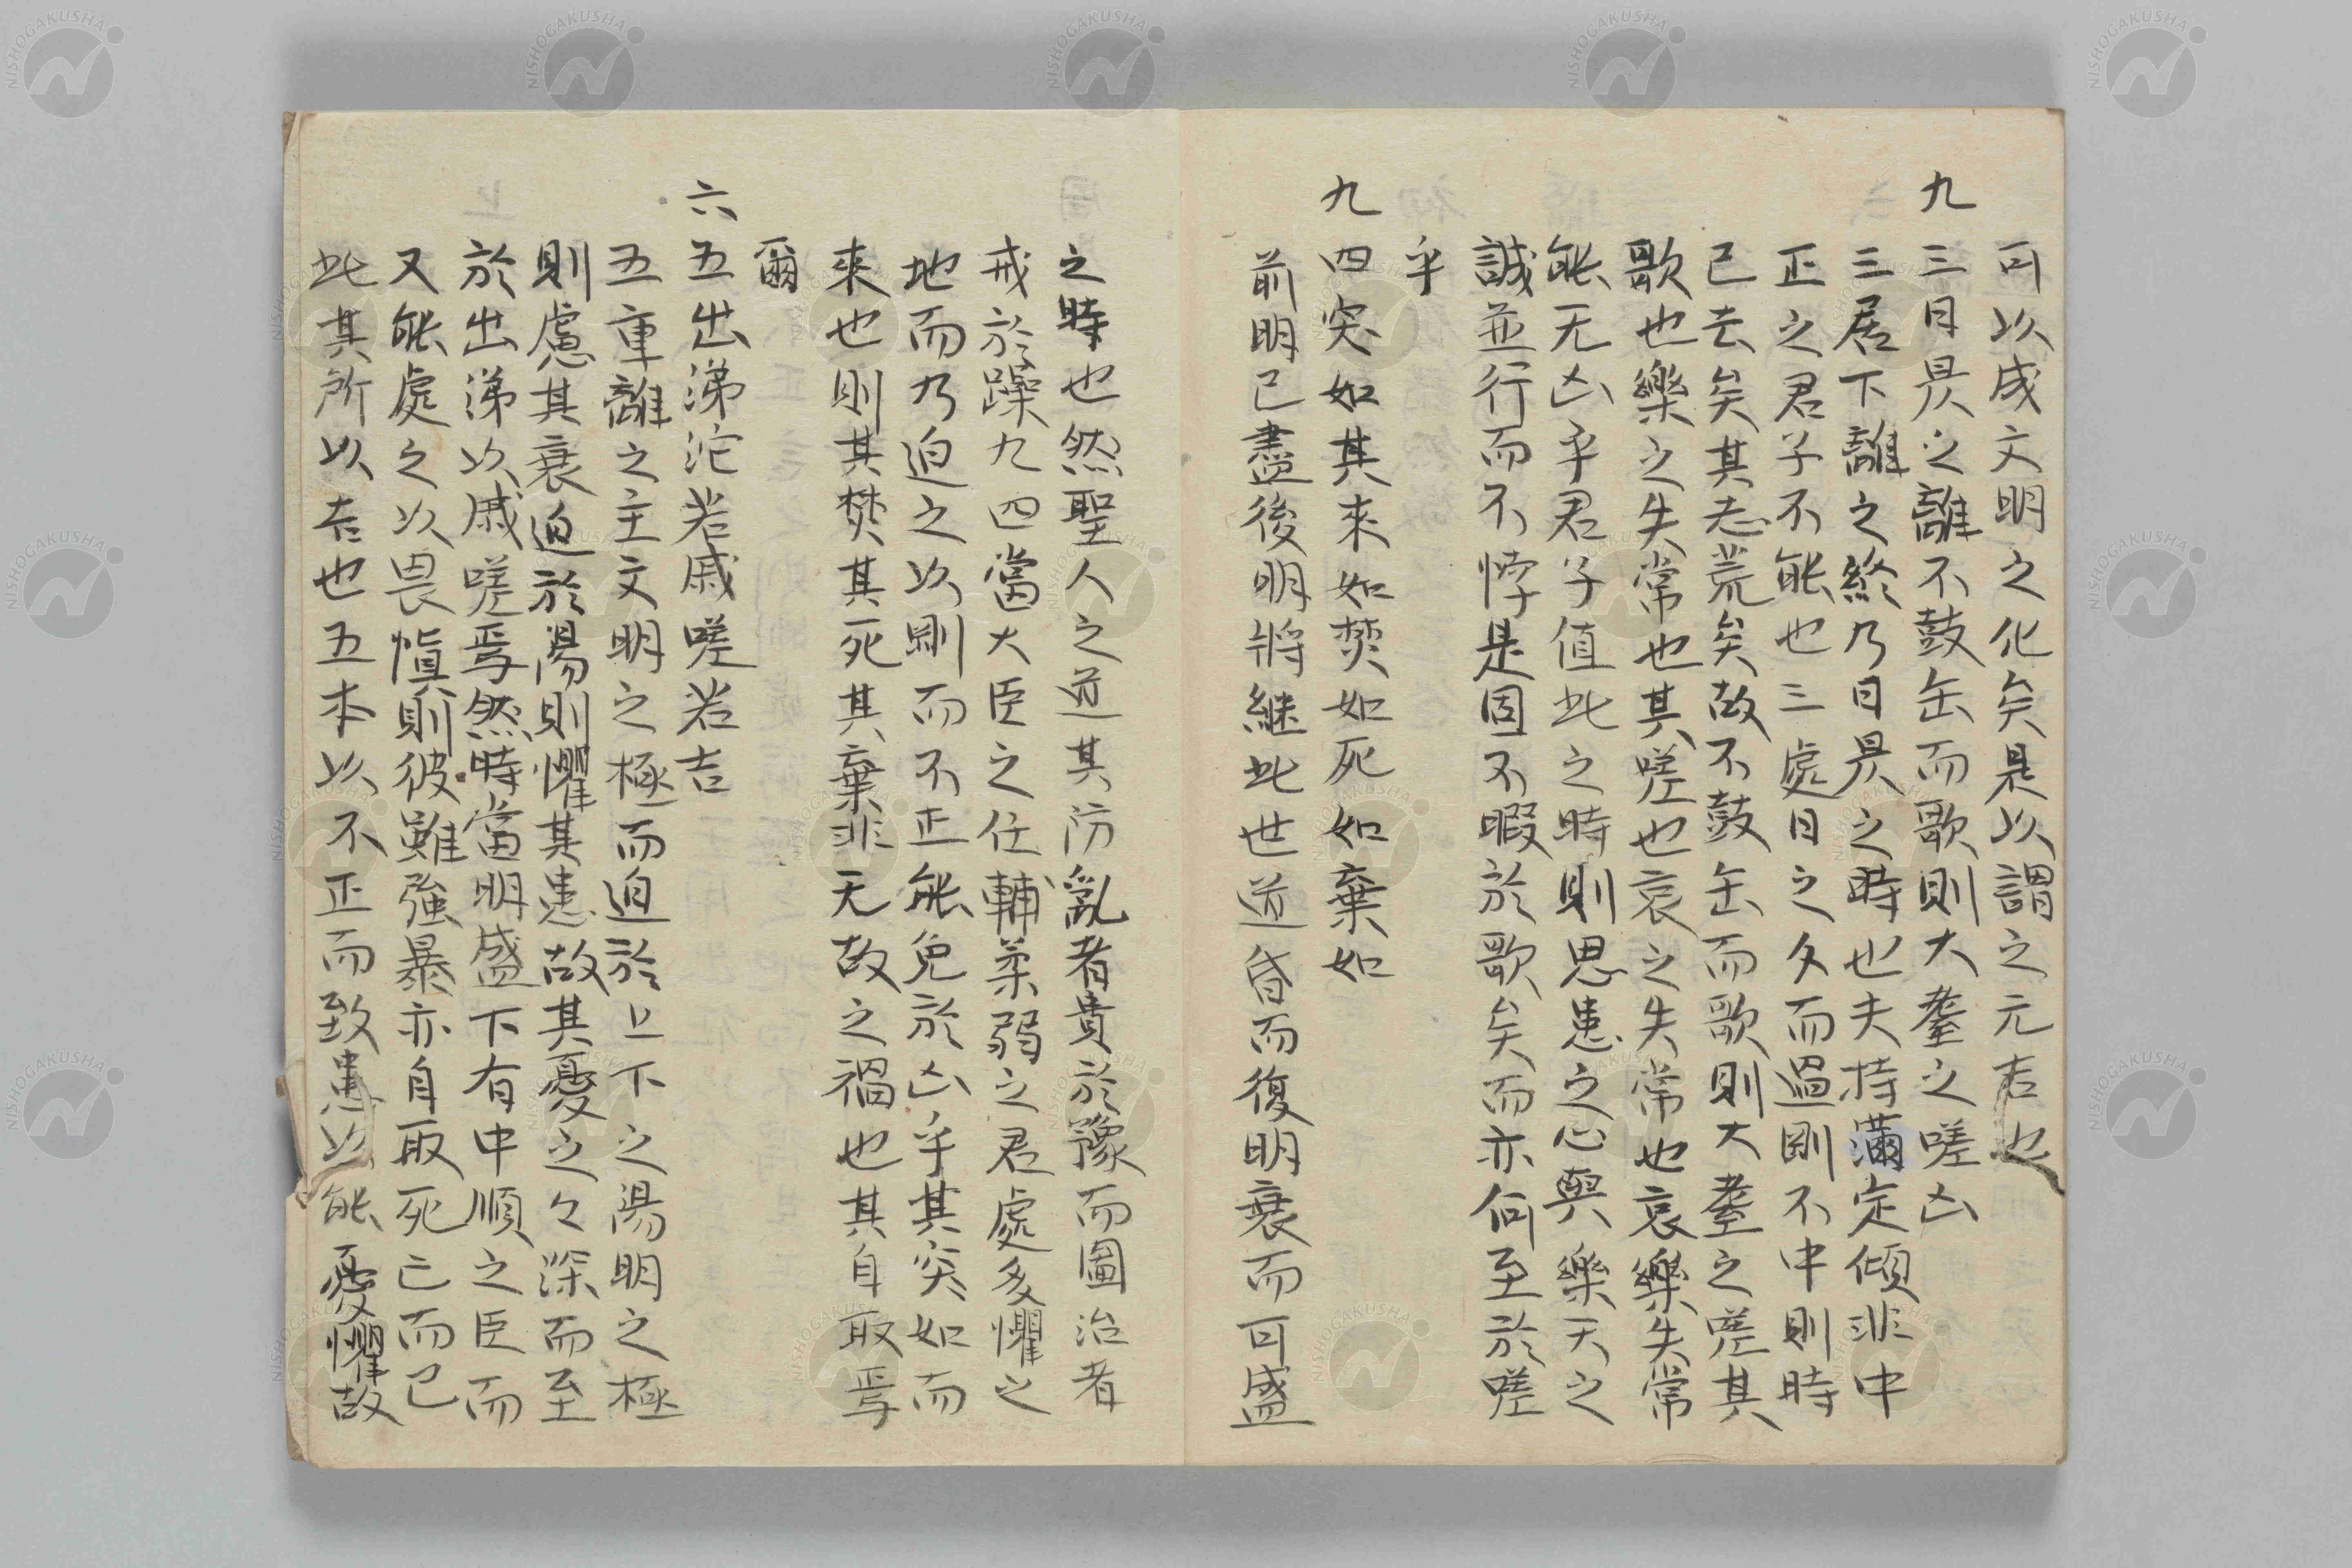 可以成文明之化矣是以謂之元吉也
九三日昃之離不鼓缶而歌則大耋之嗟凶
三居下離之終乃日昃之時也夫持滿定傾非中
正之君子不能也三處日之夕而過剛不中則時
已去矣其志荒矣故不鼓缶而歌則大耋之嗟其
歌也樂之失常也其嗟也哀之失常也哀樂失常
能无凶乎君子值此之時則思患之心與樂天之
誠並行而不悖是固不暇於歌矣而亦何至於嗟
乎
九四突如其來如焚如死如棄如
前明已盡後明將継此世道昏而復明衰而可盛
之時也然聖人之道其防亂者貴於豫而圖治者
戒於躁九四當大臣之任輔柔弱之君處多懼之
地而乃迫之以剛而不正能免於凶乎其突如而
來也則其焚其死其棄非无故之禍也其自取焉
爾
六五出涕沱若戚嗟若吉
五重離之主文明之極而迫於上下之陽明之極
則慮其衰迫於陽則懼其患故其憂之々深而至
於出涕以戚嗟焉然時當明盛下有中順之臣而
又能處之以畏慎則彼雖強暴亦自取死亡而已
此其所以吉也五本以不正而致患以能憂懼故
NISHOGAKUSHA